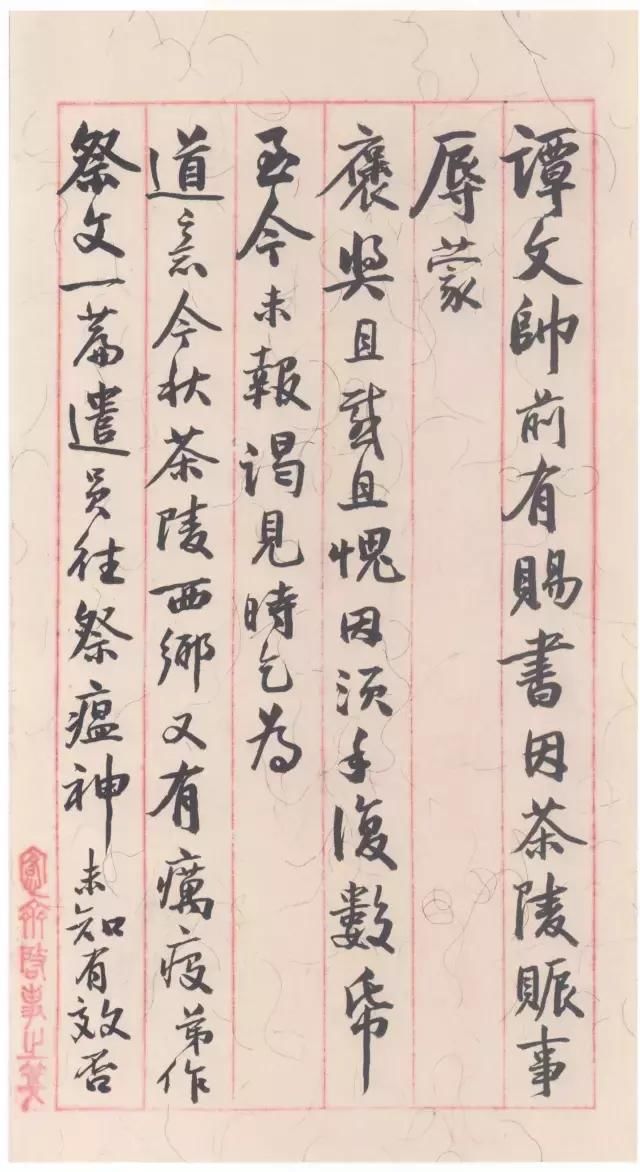 譚文帥前有賜書因茶陵賑事
辱蒙
褒獎且感且愧因須手復數帋
至今未報謁見時乞為
道意今秋茶陵西鄉又有癘疫弟作
祭文一篇遣員往祭瘟神未知有效否
愙齋啓事之箋